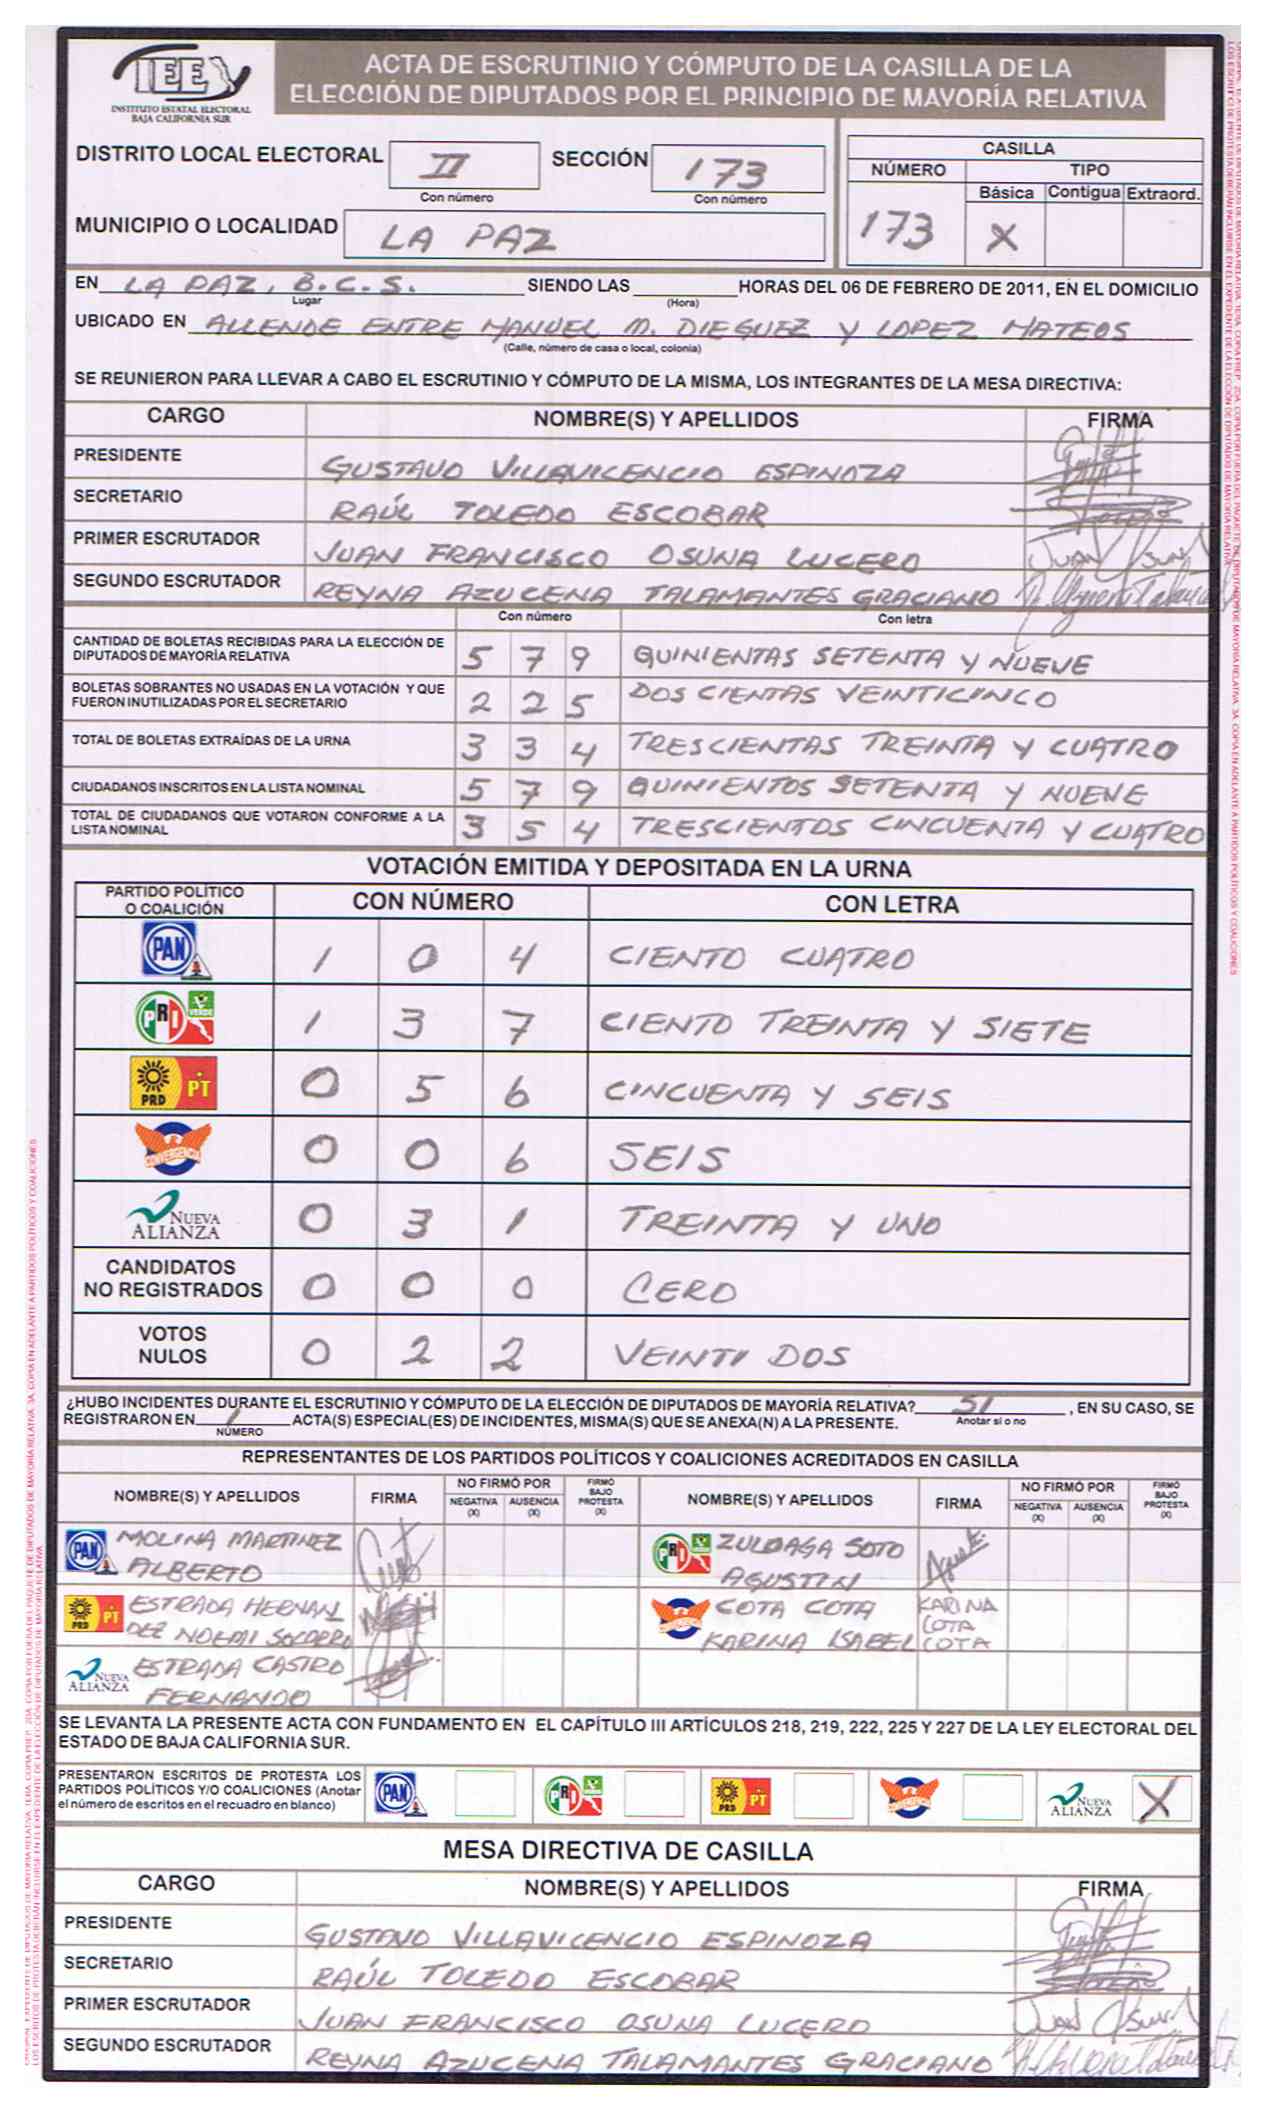 IEE
INSTITUTO ESTATAL ELECTORAL
BAJA CALIFORNIA SUR
ACTA DE ESCRUTINIO Y CÓMPUTO DE LA CASILLA DE LA
ELECCIÓN DE DIPUTADOS POR EL PRINCIPIO DE MAYORÍA RELATIVA
DISTRITO LOCAL ELECTORAL II SECCIÓN 173
Con número Con número
MUNICIPIO O LOCALIDAD LA PAZ
CASILLA
NÚMERO TIPO
Básica Contigua Extraord.
173 X
EN LA PAZ, B.C.S. SIENDO LAS HORAS DEL 06 DE FEBRERO DE 2011, EN EL DOMICILIO
Lugar (Hora)
UBICADO EN ALLENDE ENTRE MANUEL M. DIEGUEZ Y LOPEZ MATEOS
(Calle, número de casa o local, colonia)
SE REUNIERON PARA LLEVAR A CABO EL ESCRUTINIO Y CÓMPUTO DE LA MISMA, LOS INTEGRANTES DE LA MESA DIRECTIVA:
CARGO NOMBRE(S) Y APELLIDOS FIRMA
PRESIDENTE GUSTAVO VILLAVICENCIO ESPINOZA
SECRETARIO RAÚL TOLEDO ESCOBAR
PRIMER ESCRUTADOR JUAN FRANCISCO OSUNA LUCERO Juan Osuna
SEGUNDO ESCRUTADOR REYNA AZUCENA TALAMANTES GRACIANO
Con número Con letra
CANTIDAD DE BOLETAS RECIBIDAS PARA LA ELECCIÓN DE
DIPUTADOS DE MAYORÍA RELATIVA 5 7 9 QUINIENTAS SETENTA Y NUEVE
BOLETAS SOBRANTES NO USADAS EN LA VOTACIÓN Y QUE
FUERON INUTILIZADAS POR EL SECRETARIO 2 2 5 DOS CIENTAS VEINTICINCO
TOTAL DE BOLETAS EXTRAÍDAS DE LA URNA 3 3 4 TRESCIENTAS TREINTA Y CUATRO
CIUDADANOS INSCRITOS EN LA LISTA NOMINAL 5 7 9 QUINIENTOS SETENTA Y NUEVE
TOTAL DE CIUDADANOS QUE VOTARON CONFORME A LA
LISTA NOMINAL 3 5 4 TRESCIENTOS CINCUENTA Y CUATRO
VOTACIÓN EMITIDA Y DEPOSITADA EN LA URNA
PARTIDO POLÍTICO
O COALICIÓN CON NÚMERO CON LETRA
PAN 1 0 4 CIENTO CUATRO
PRI VERDE 1 3 7 CIENTO TREINTA Y SIETE
PRD PT 0 5 6 CINCUENTA Y SEIS
CONVERGENCIA 0 0 6 SEIS
NUEVA ALIANZA 0 3 1 TREINTA Y UNO
CANDIDATOS
NO REGISTRADOS 0 0 0 CERO
VOTOS
NULOS 0 2 2 VEINTI DOS
¿HUBO INCIDENTES DURANTE EL ESCRUTINIO Y CÓMPUTO DE LA ELECCIÓN DE DIPUTADOS DE MAYORÍA RELATIVA? SI , EN SU CASO, SE
Anotar si o no
REGISTRARON EN 1 ACTA(S) ESPECIAL(ES) DE INCIDENTES, MISMA(S) QUE SE ANEXA(N) A LA PRESENTE.
NÚMERO
REPRESENTANTES DE LOS PARTIDOS POLÍTICOS Y COALICIONES ACREDITADOS EN CASILLA
NOMBRE(S) Y APELLIDOS FIRMA NO FIRMÓ POR NEGATIVA (X) AUSENCIA (X) FIRMÓ BAJO PROTESTA (X) NOMBRE(S) Y APELLIDOS FIRMA NO FIRMÓ POR NEGATIVA (X) AUSENCIA (X) FIRMÓ BAJO PROTESTA (X)
PAN MOLINA MARTINEZ PRI VERDE ZULOAGA SOTO
ALBERTO AGUSTIN
PRD PT ESTRADA HERNAN CONVERGENCIA COTA COTA KARINA
DEZ NOEMI SOCORRO KARINA ISABEL COTA COTA
NUEVA ALIANZA ESTRADA CASTRO
FERNANDO
SE LEVANTA LA PRESENTE ACTA CON FUNDAMENTO EN EL CAPÍTULO III ARTÍCULOS 218, 219, 222, 225 Y 227 DE LA LEY ELECTORAL DEL
ESTADO DE BAJA CALIFORNIA SUR.
PRESENTARON ESCRITOS DE PROTESTA LOS
PARTIDOS POLÍTICOS Y/O COALICIONES (Anotar
el número de escritos en el recuadro en blanco) PAN PRI VERDE PRD PT CONVERGENCIA NUEVA ALIANZA X
MESA DIRECTIVA DE CASILLA
CARGO NOMBRE(S) Y APELLIDOS FIRMA
PRESIDENTE GUSTAVO VILLAVICENCIO ESPINOZA
SECRETARIO RAÚL TOLEDO ESCOBAR
PRIMER ESCRUTADOR JUAN FRANCISCO OSUNA LUCERO Juan Osuna
SEGUNDO ESCRUTADOR REYNA AZUCENA TALAMANTES GRACIANO